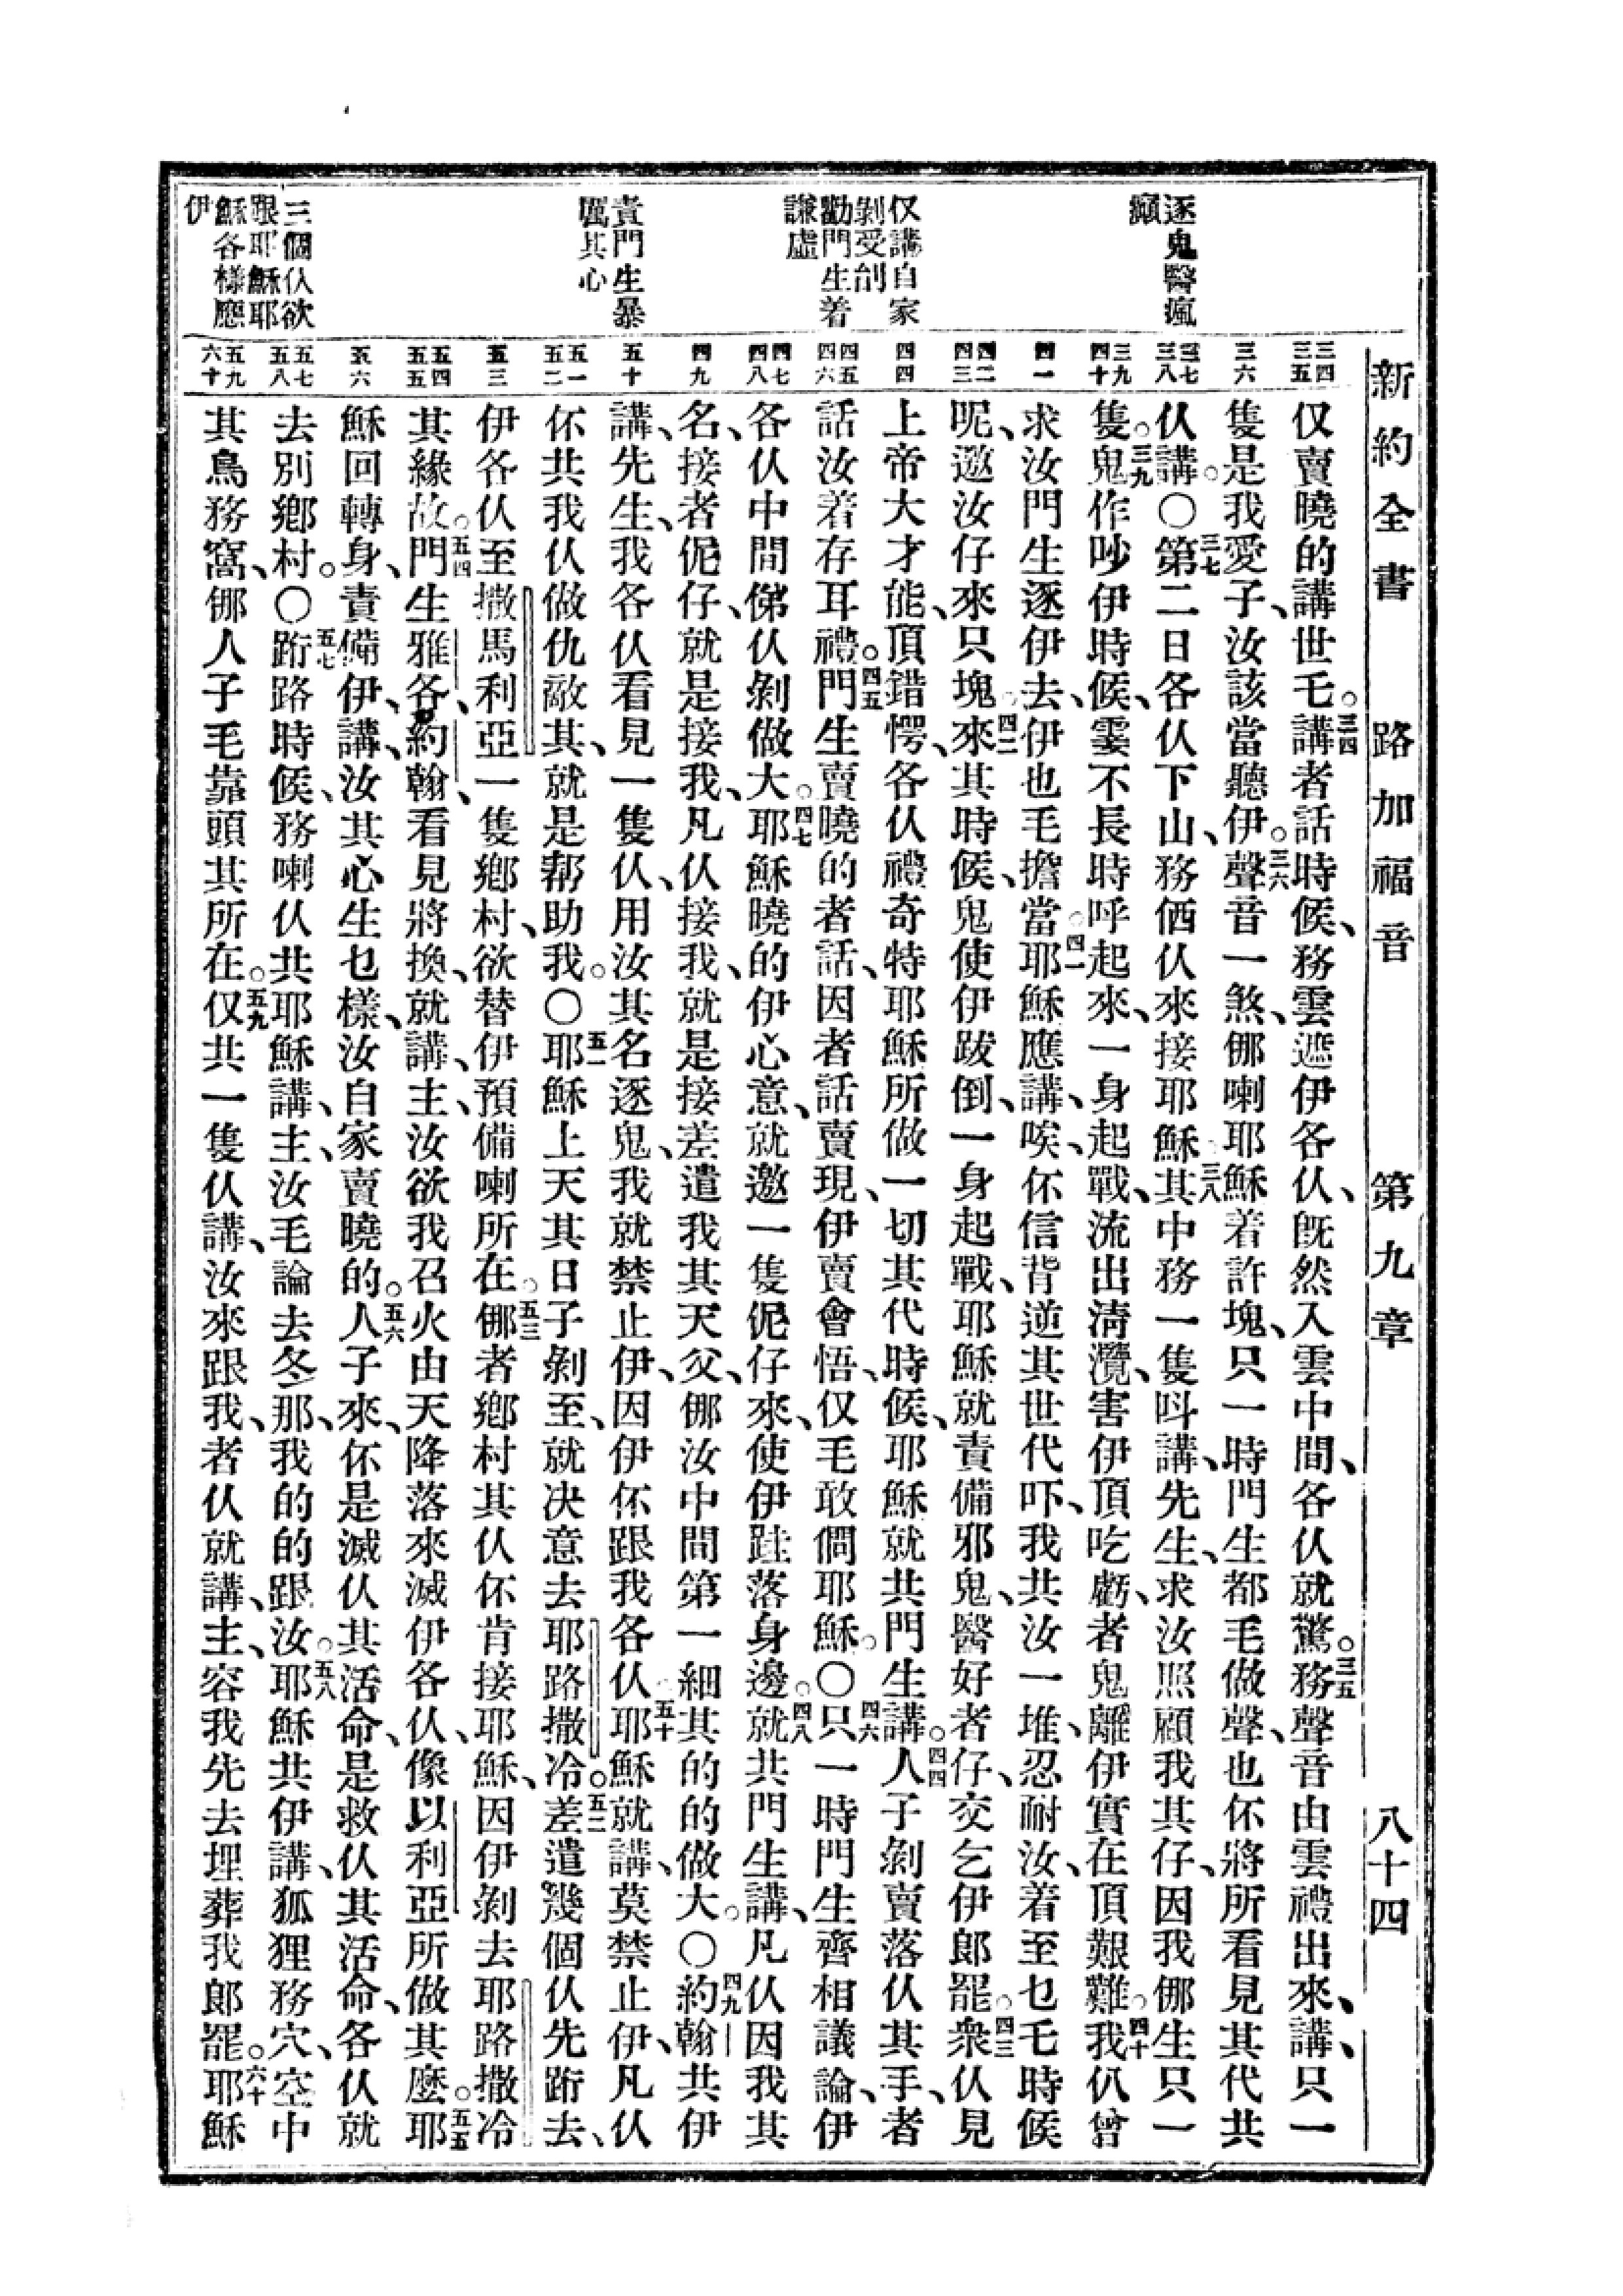 新約全書 路加福音 第九章 八十四
逐鬼醫瘋
癲
仅講自家
剝受刣
勸門生着
謙虛
責門生暴
厲其心
三個仈欲
跟耶穌耶
穌各樣應
伊
三四
三五
三六
三七
三八
三九
四十
四一
四二
四三
四四
四五
四六
四七
四八
四九
五十
五一
五二
五三
五四
五五
五六
五七
五八
五九
六十
仅賣曉的講世乇。三四講者話時候、務雲遮伊各仈、旣然入雲中間、各仈就驚。三五務聲音由雲禮出來、講、只一
隻是我愛子、汝該當聽伊。三六聲音一煞、挪喇耶穌着許塊、只一時門生都毛做聲、也伓將所看見其代共
仈講。〇三七第二日各仈下山、務侕仈來接耶穌。三八其中務一隻呌講、先生、求汝照顧我其仔、因我挪生只一
隻。三九鬼作吵伊時候、霎不長時呼起來、一身起戰、流出淸灠、害伊頂吃虧、者鬼離伊實在頂艱難。四十我仈曾
求汝門生逐伊去、伊也毛擔當。四一耶穌應講、唉、伓信背逆其世代吓、我共汝一堆、忍耐汝、着至乜乇時候
呢、邀汝仔來只塊。四二來其時候、鬼使伊跋倒、一身起戰、耶穌就責備邪鬼、醫好者仔、交乞伊郞罷。四三衆仈見
上帝大才能、頂錯愕、各仈禮奇特耶穌所做一切其代時候、耶穌就共門生講。四四人子剝賣落仈其手、者
話汝着存耳禮。四五門生賣曉的者話、因者話賣現、伊賣會悟、仅毛敢問耶穌。〇四六只一時門生齊相議論、伊
各仈中間俤仈剝做大。四七耶穌曉的伊心意、就邀一隻伲仔來、使伊跬落身邊。四八就共門生講、凡仈因我其
名、接者伲仔、就是接我、凡仈接我、就是接差遣我其天父、挪汝中間第一細其的的做大。〇四九約翰共伊
講、先生、我各仈看見一隻仈、用汝其名逐鬼、我就禁止伊、因伊伓跟我各仈。五十耶穌就講、莫禁止伊、凡仈
伓共我仈做仇敵其、就是帮助我。〇五一耶穌上天其日子剝至、就决意去耶路撒冷。五二差遣幾個仈先跻去、
伊各仈至撒馬利亞一隻鄕村、欲替伊預備喇所在。五三挪者鄕村其仈伓肯接耶穌、因伊剝去耶路撒冷
其緣故。五四門生雅各、約翰、看見將換、就講、主、汝欲我召火由天降落來滅伊各仈、像以利亞所做其麽。五五耶
穌回轉身、責備伊、講、汝其心生乜樣、汝自家賣曉的。五六人子來、伓是滅仈其活命、是救仈其活命、各仈就
去別鄕村。〇五七跻路時候、務喇仈共耶穌講、主、汝毛論去冬那、我的的跟汝。五八耶穌共伊講、狐狸務穴、空中
其鳥務窩、挪人子毛靠頭其所在。五九仅共一隻仈講、汝來跟我、者仈就講、主、容我先去埋葬我郞罷。六十耶穌